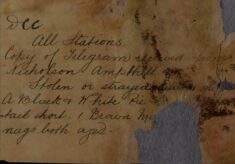 Dcc
All Stations.
Copy of Telegram received from
Nicholson Ampthill
Stolen or strayed
A Black & White
tail short. 1 Brown
nags both aged